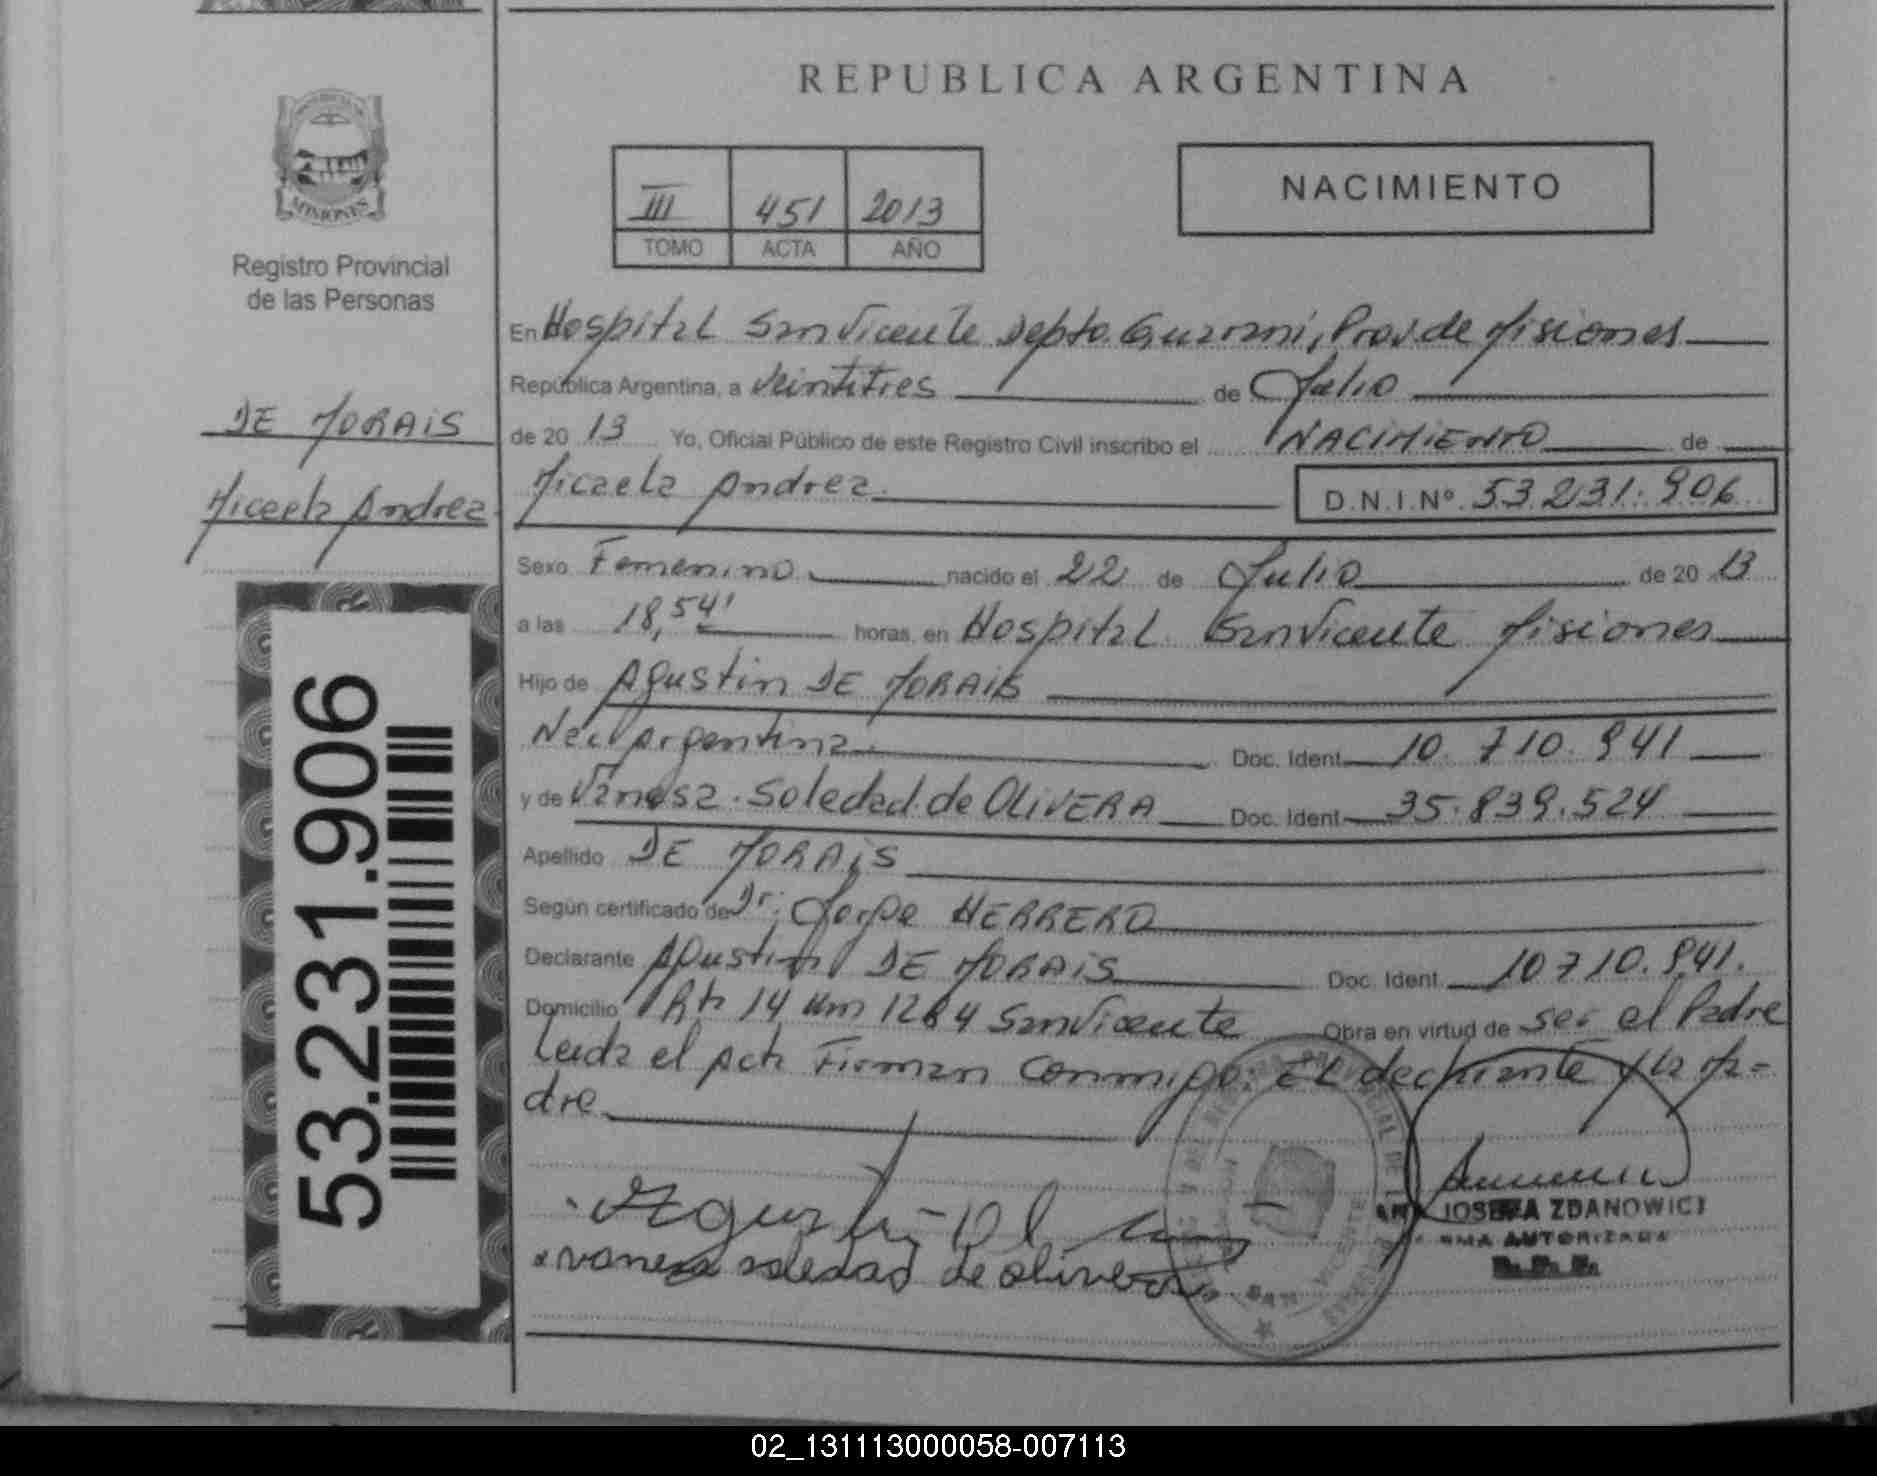 REPUBLICA ARGENTINA
MISIONES
Registro Provincial
de las Personas
III 451 2013
TOMO ACTA AÑO
NACIMIENTO
En Hospital San Vicente Depto. Guarani, Prov. de Misiones
República Argentina, a Veintitres de Julio
de 20 13 Yo, Oficial Público de este Registro Civil inscribo el NACIMIENTO de
Micaela Andrea D.N.I.Nº 53.231.906
DE MORAIS
Micaela Andrea
Sexo Femenino nacido el 22 de Julio de 20 13
a las 18,54' horas, en Hospital San Vicente Misiones
Hijo de Agustin DE MORAIS
Nac. Argentina Doc. Ident 10.710.941
y de Vanesa Soledad de OLIVERA Doc. Ident 35.839.524
Apellido DE MORAIS
Según certificado de Dr. Jorge HERRERO
Declarante Agustin DE MORAIS Doc. Ident 10710.941.
Domicilio Rta 14 Km 1264 San Vicente Obra en virtud de ser el Padre
Leida el Acta Firman Conmigo: EL declarante y la Ma=
dre
53.231.906
Agustin
vanesa soledad de olivera
SAN VICENTE
JOSEFA ZDANOWICZ
AUTORIZADA
02_131113000058-007113